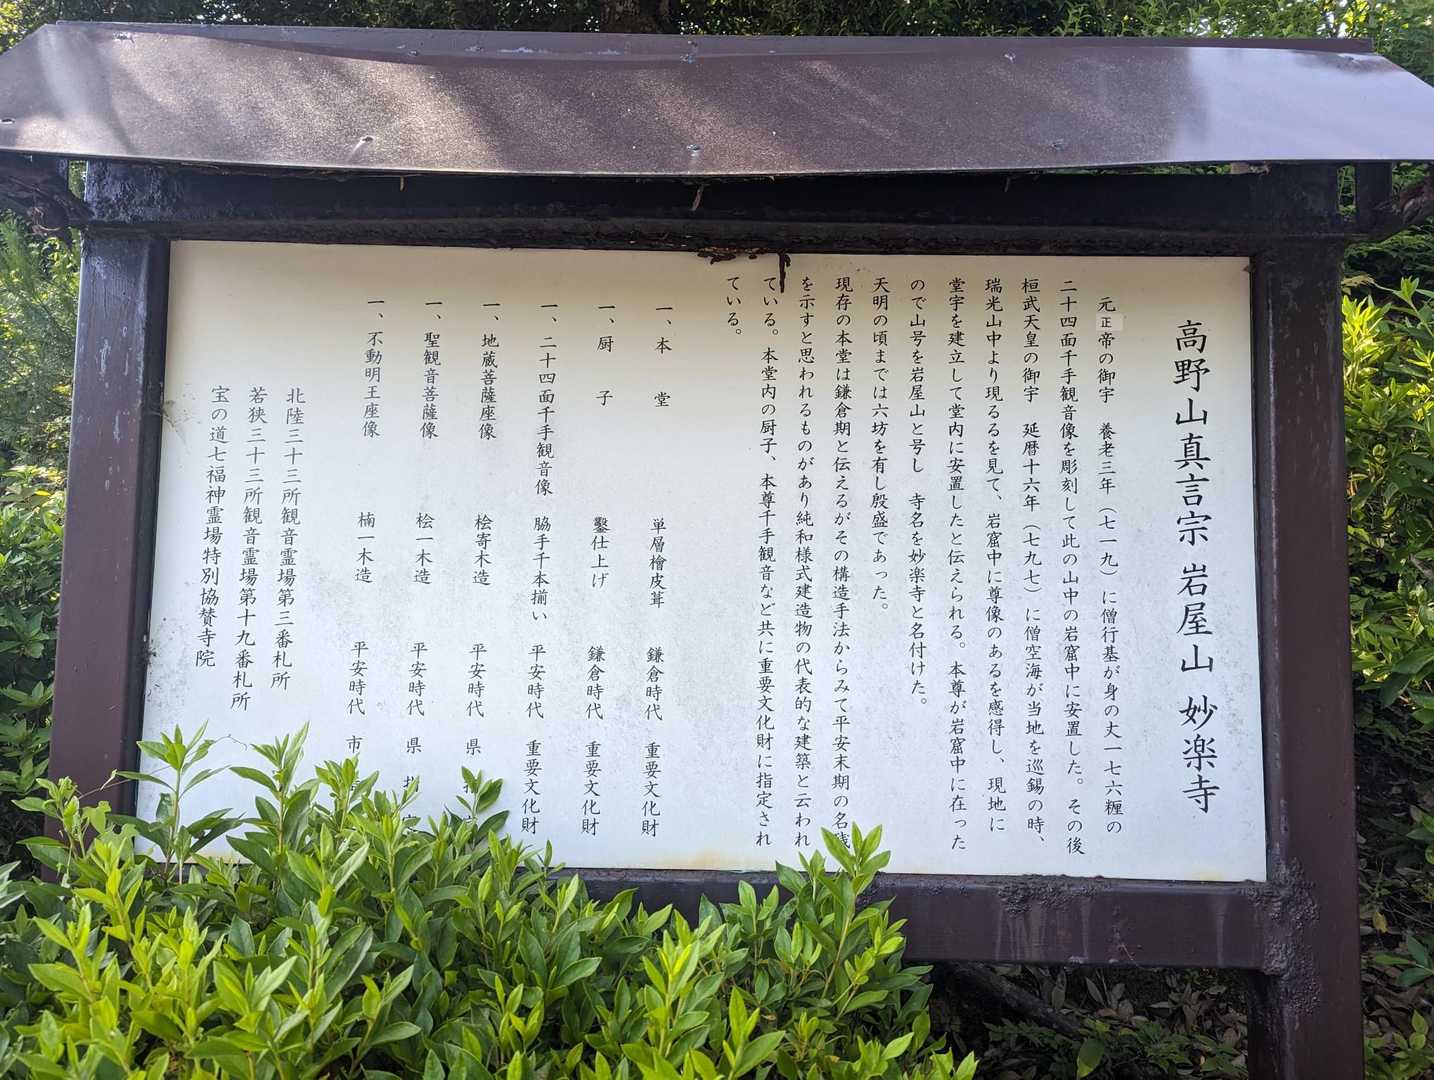 高野山真言宗 岩屋山 妙楽寺
元正帝の御宇 養老三年（七一九）に僧行基が身の丈一七六糎の
二十四面千手観音像を彫刻して此の山中の岩窟中に安置した。その後
桓武天皇の御宇 延暦十六年（七九七）に僧空海が当地を巡錫の時、
瑞光山中より現るるを見て、岩窟中に尊像のあるを感得し、現地に
堂宇を建立して堂内に安置したと伝えられる。本尊が岩窟中に在った
ので山号を岩屋山と号し 寺名を妙楽寺と名付けた。
天明の頃までは六坊を有し殷盛であった。
現存の本堂は鎌倉期と伝えるがその構造手法からみて平安末期の名残
を示すと思われるものがあり純和様式建造物の代表的な建築と云われ
ている。本堂内の厨子、本尊千手観音など共に重要文化財に指定され
ている。
一、本 堂 単層檜皮葺 鎌倉時代 重要文化財
一、厨 子 鑿仕上げ 鎌倉時代 重要文化財
一、二十四面千手観音像 脇手千本揃い 平安時代 重要文化財
一、地蔵菩薩座像 桧寄木造 平安時代 県 指
一、聖観音菩薩像 桧一木造 平安時代 県 指
一、不動明王座像 楠一木造 平安時代 市
北陸三十三所観音霊場第三番札所
若狭三十三所観音霊場第十九番札所
宝の道七福神霊場特別協賛寺院